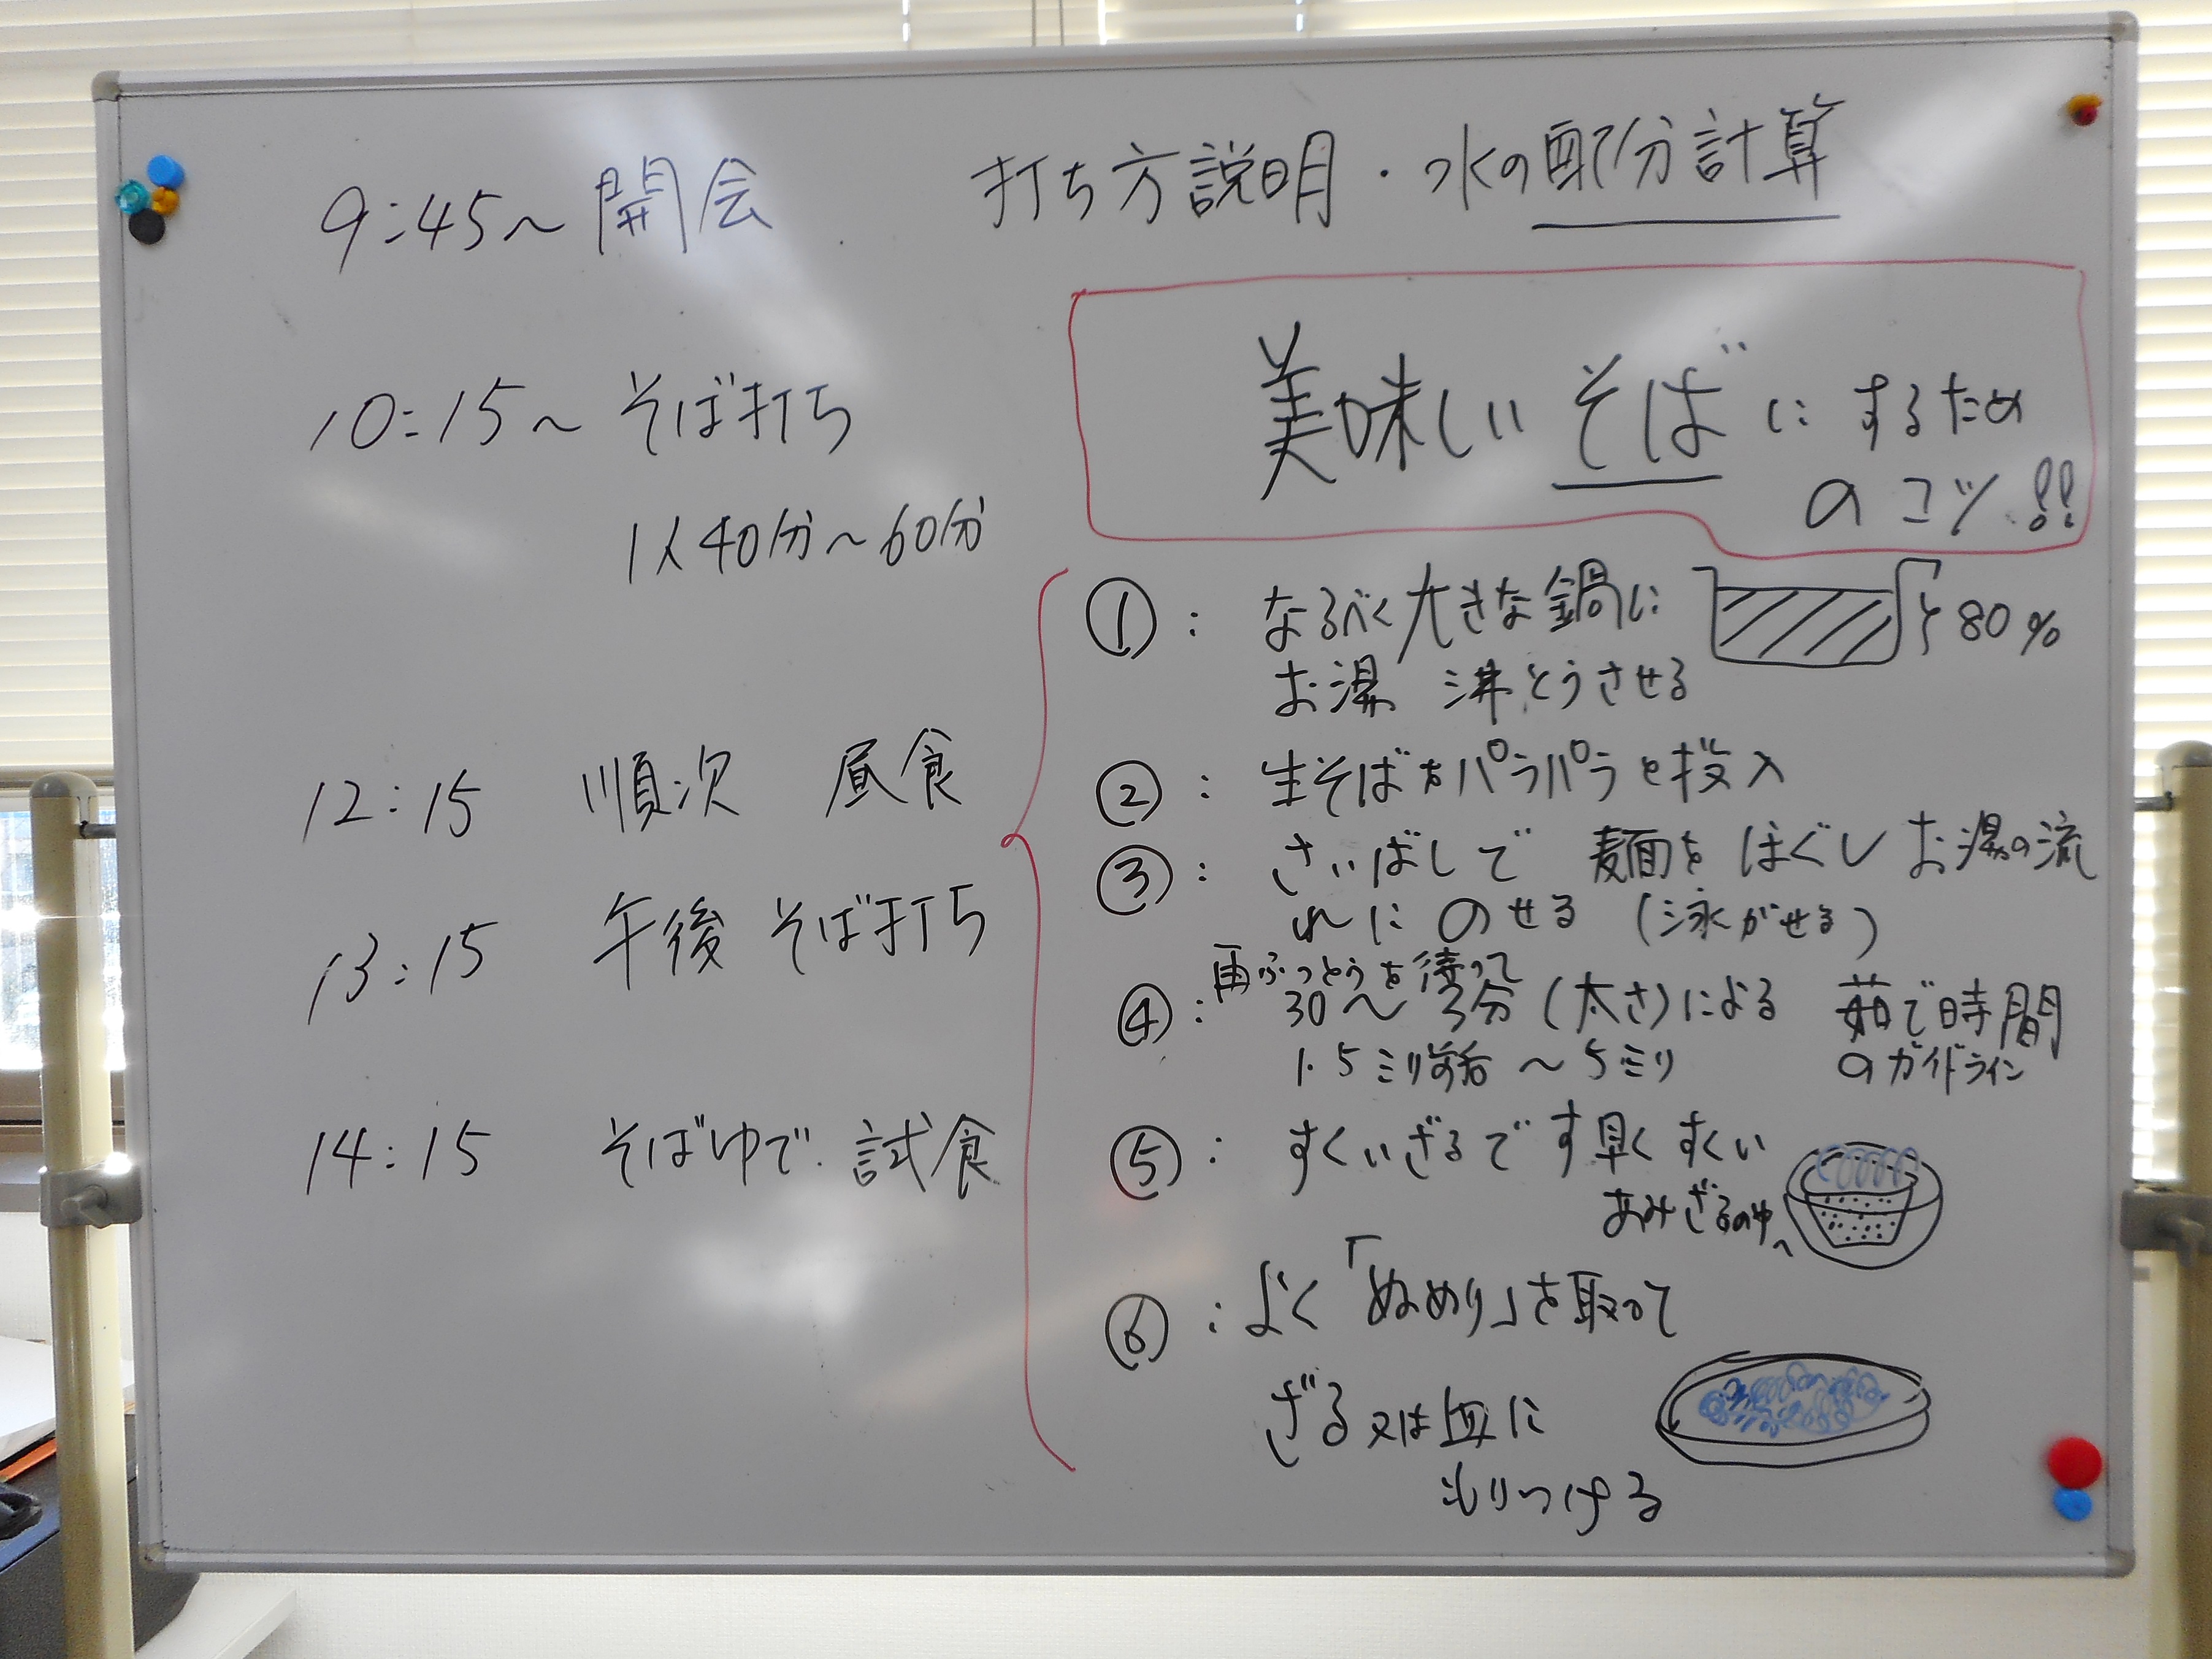 9:45～開会　打ち方説明・水の配分計算
10:15～そば打ち
1人40分～60分
12:15　順次　昼食
13:15　午後　そば打ち
14:15　そばゆで.試食
美味しいそばにするため
のコツ!!
①：なるべく大きな鍋に
お湯　沸とうさせる
80%
②：生そばをパラパラと投入
③：さいばしで　麺をほぐしお湯の流
れにのせる（泳がせる）
再ふっとうを待って
④：30～3分(太さ)による　茹で時間
1.5ミリ～5ミリ　のガイドライン
⑤：すくいざるです早くすくい
あみざるの中へ
⑥：よく「ぬめり」を取って
ざる又は皿に
もりつける